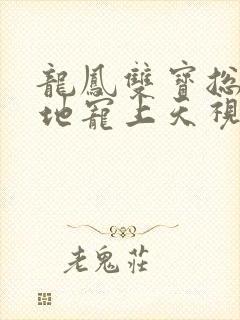 龍鳳雙寶總
地寵上天視
老鬼莊